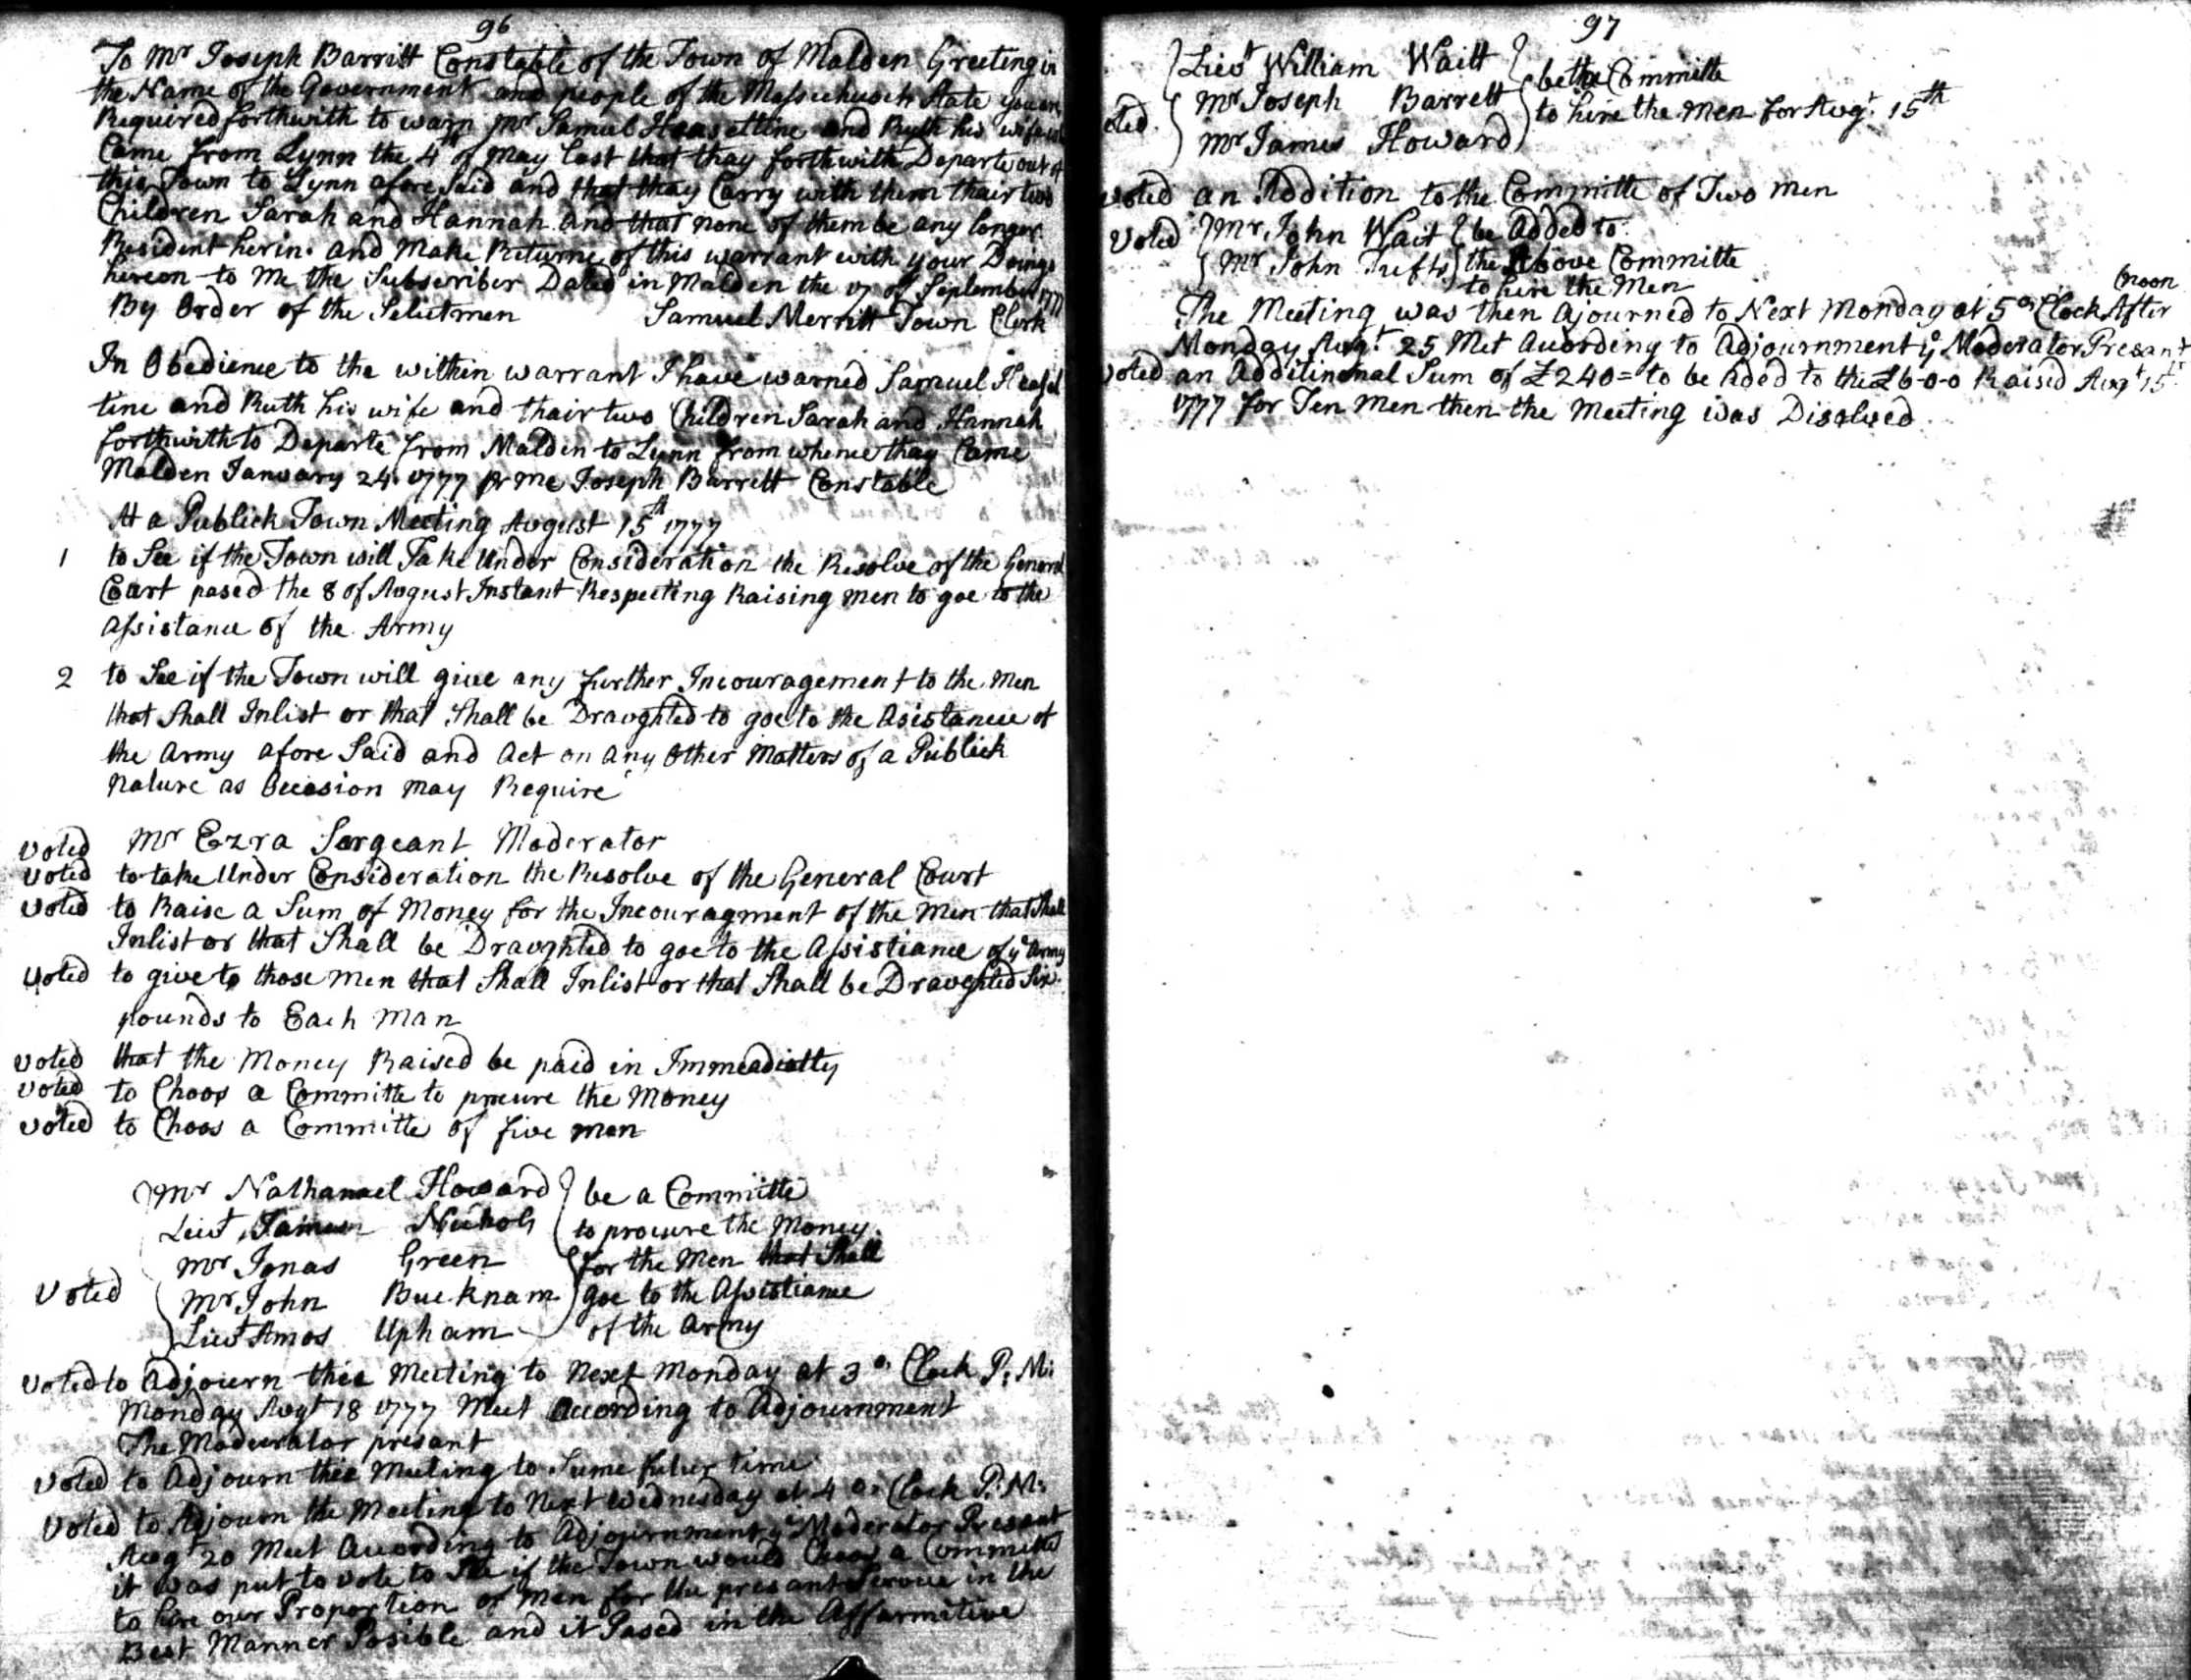 96
To Mr Joseph Barritt Constable of the Town of Malden Greeting in
the Name of the Government and people of the Massachusets State you are
Required forthwith to warn Mr Samuel Heasseltine and Ruth his wife
Came from Lynn the 4th of May last that thay forthwith Departe out of
this Town to Lynn afore Said and that thay Carry with them thair two
Children Sarah and Hannah and that none of them be any longer
Resident herin. and Make Returne of this warrant with your Doings
hereon to Me the Subscriber Dated in Malden the 17 of September 1777
By Order of the Selectmen Samuel Merritt Town Clerk
In Obedience to the within warrant I have warned Samuel Heasel
tine and Ruth his wife and thair two Children Sarah and Hannah
forthwith to Departe from Malden to Lynn from whence thay Came
Malden January 24 1777 pr me Joseph Barrett Constable
At a Publick Town Meeting August 15th 1777
1 to See if the Town will Take Under Consideration the Resolve of the General
Court pased the 8 of August Instant Respecting Raising men to goe to the
Assistance of the Army
2 to See if the Town will give any further Incouragement to the Men
that Shall Inlist or that Shall be Draughted to goe to the Asistance of
the Army afore Said and Act on any Other Matters of a Publick
Nature as Occasion may Require
Voted Mr Ezra Sargeant Moderator
Voted to take Under Consideration the Resolve of the General Court
Voted to Raise a Sum of Money for the Incouragment of the Men that Shall
Inlist or that Shall be Draughted to goe to the Assistiance of ye Army
Voted to give to those men that Shall Inlist or that Shall be Draughted Six
pounds to Each Man
Voted that the Money Raised be paid in Immeadiatly
Voted to Choos a Committe to procure the Money
Voted to Choos a Committe of five men
Mr Nathanael Howard be a Committe
Lieut James Nichols to procure the Money
Mr Jonas Green for the Men that Shall
Voted Mr John Bucknam goe to the Assistiance
Lieut Amos Upham of the Army
Voted to Adjourn this Meeting to Next Monday at 3 o Clock P: M:
Monday Augt 18 1777 Meet According to Adjournment
The Moderator presant
Voted to Adjourn this Meeting to Sume futer time
Voted to Adjourn the Meeting to Next Wednesday at 4 o Clock P: M:
Augt 20 Meet According to Adjournment ye Moderator Presant
it was put to vote to See if the Town would Choos a Committe
to hire our Proportion of Men for the presant Service in the
Best Manner Posible and it Pased in the Affarmitive
97
Lieut William Waitt be the Committe
Voted Mr Joseph Barrett to hire the Men for Augt 15th
Mr James Howard
Voted an Addition to the Committe of Two men
Voted Mr John Wait be Added to
Mr John Tufts the Above Committe
to hire the Men
The Meeting was then Ajourned to Next Monday at 5 o Clock After
noon
Monday Augt 25 Met Acording to Adjournment ye Moderator Presant
Voted an Additinonal Sum of £240= to be Added to the £6-0-0 Raised Augt 15t
1777 for Ten Men then the Meeting was Disolved